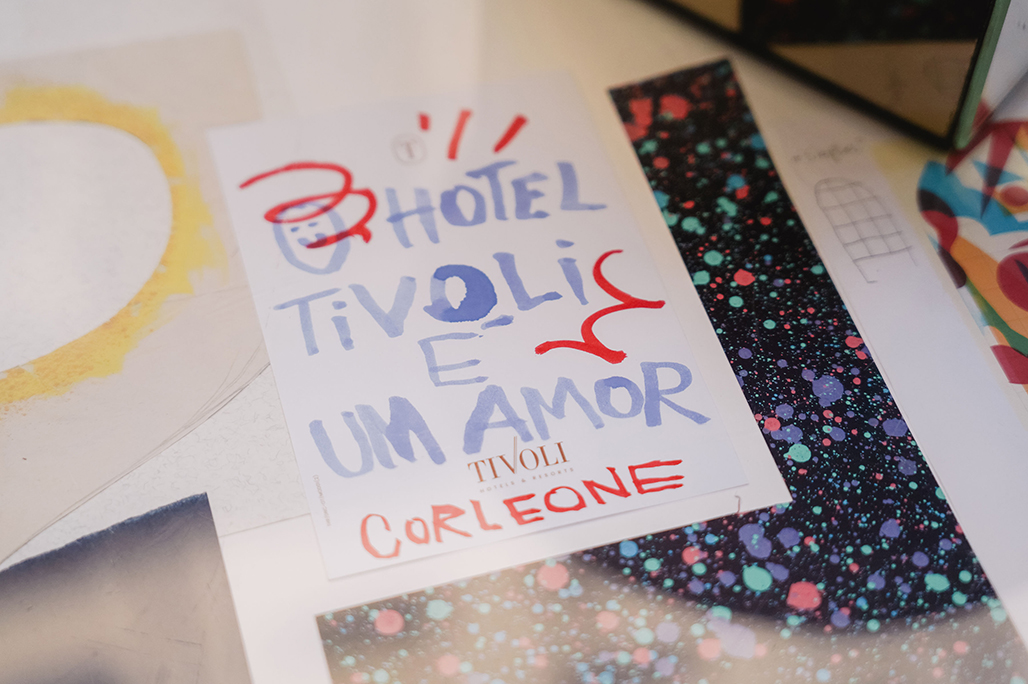 T
O HOTEL
TiVOLi
É
UM AMOR
TIVOLI
HOTELS & RESORTS
CORLEONE